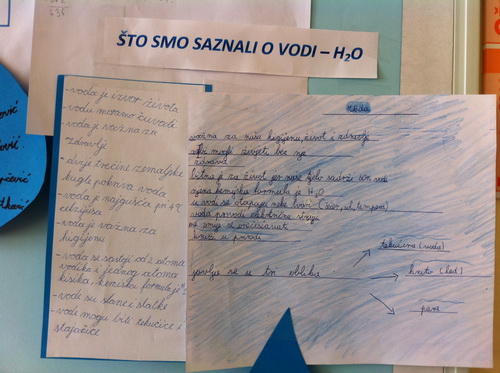 ŠTO SMO SAZNALI O VODI – H₂O
- voda je izvor života
- vodu moramo čuvati
- voda je važna za
zdravlje
- dvije trećine zemaljske
kugle pokriva voda
- voda je najgušća pri 4°
celzijusa
- voda je važna za
higijenu
- voda se sastoji od 2 atoma
vodika i jednog atoma
kisika, kemijska formula je
- vode su slane i slatke
- vode mogu biti tekućice i
stajaćice
voda
važna za našu higijenu, život i zdravlje
živjeti bez nje
bitna je za život jer naše tijelo sadrži vode
njena kemijska formula je H₂O
u vodi se otapaju neke tvari (
voda provodi električnu struju
kruži u prirodi
javlja se u tri oblika:
tekućina (voda)
kruto (led)
para